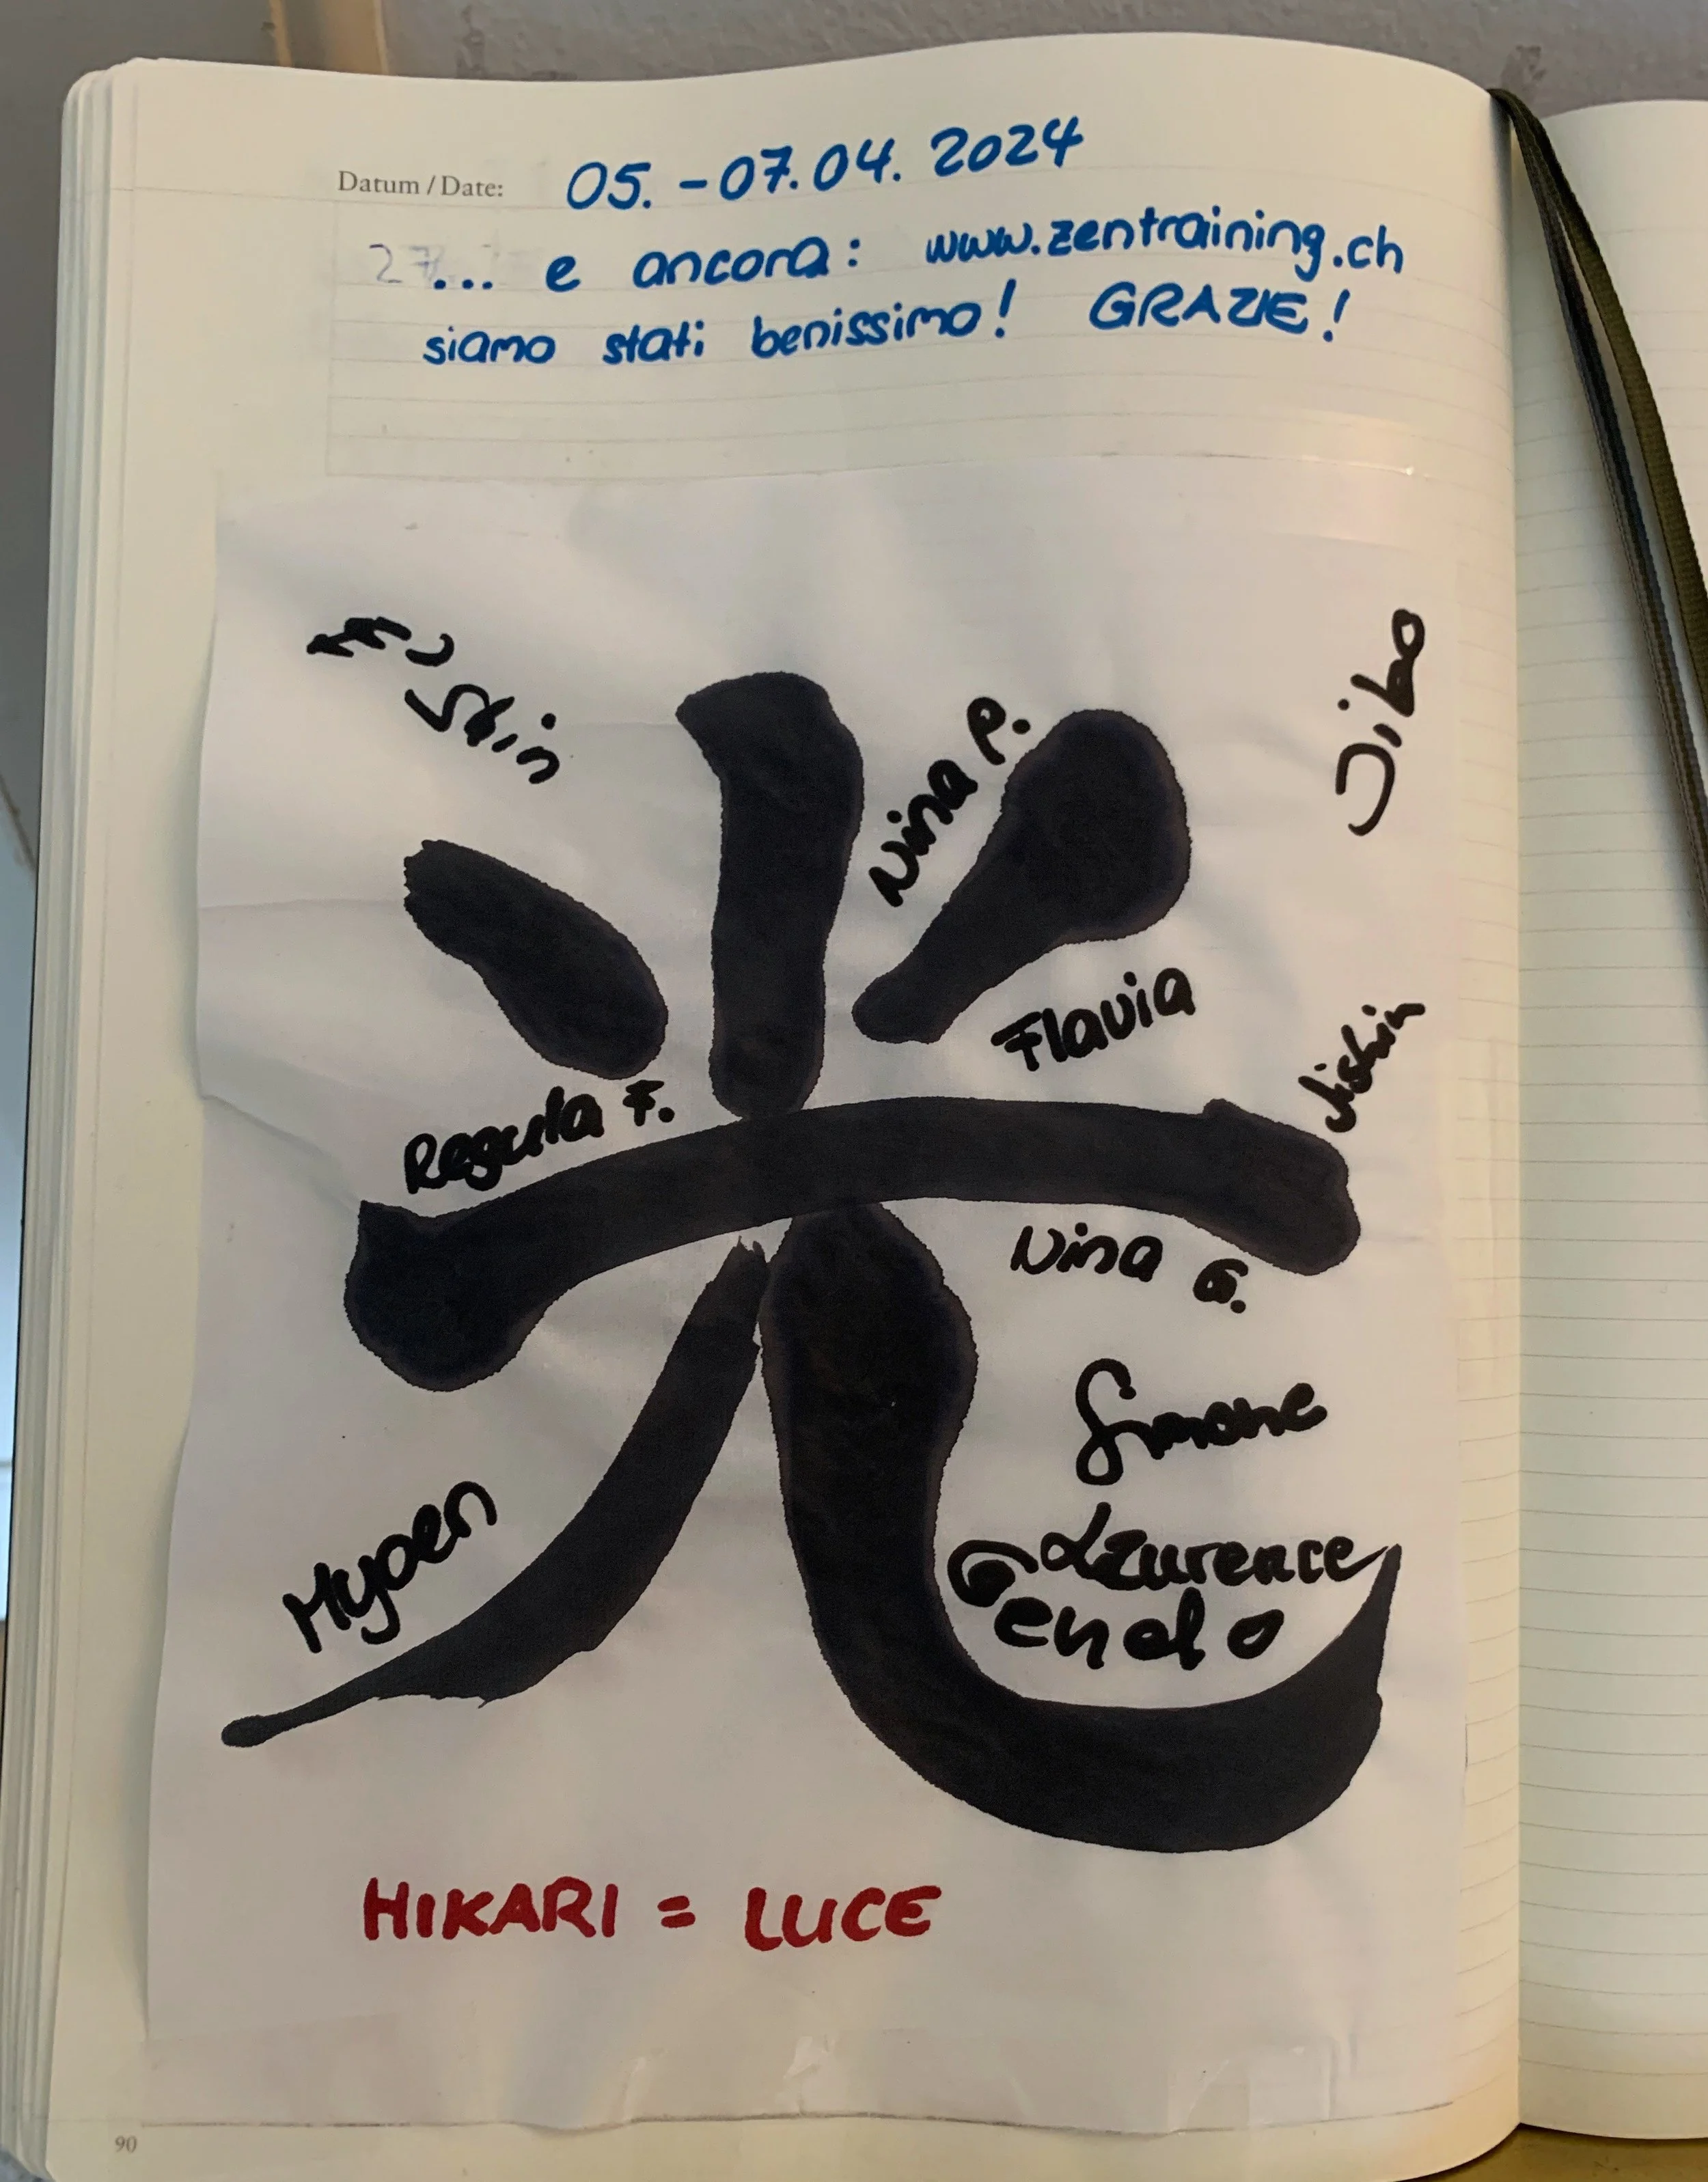 Datum / Date: 05. - 07.04. 2024
... e ancora: www.zentraining.ch
siamo stati benissimo! GRAZIE!
Shin
Jiho
Nina P.
光
Flavia
Jishin
Regula F.
Nina G.
Simone
Laurence
Gendo
Myoen
HIKARI = LUCE
90